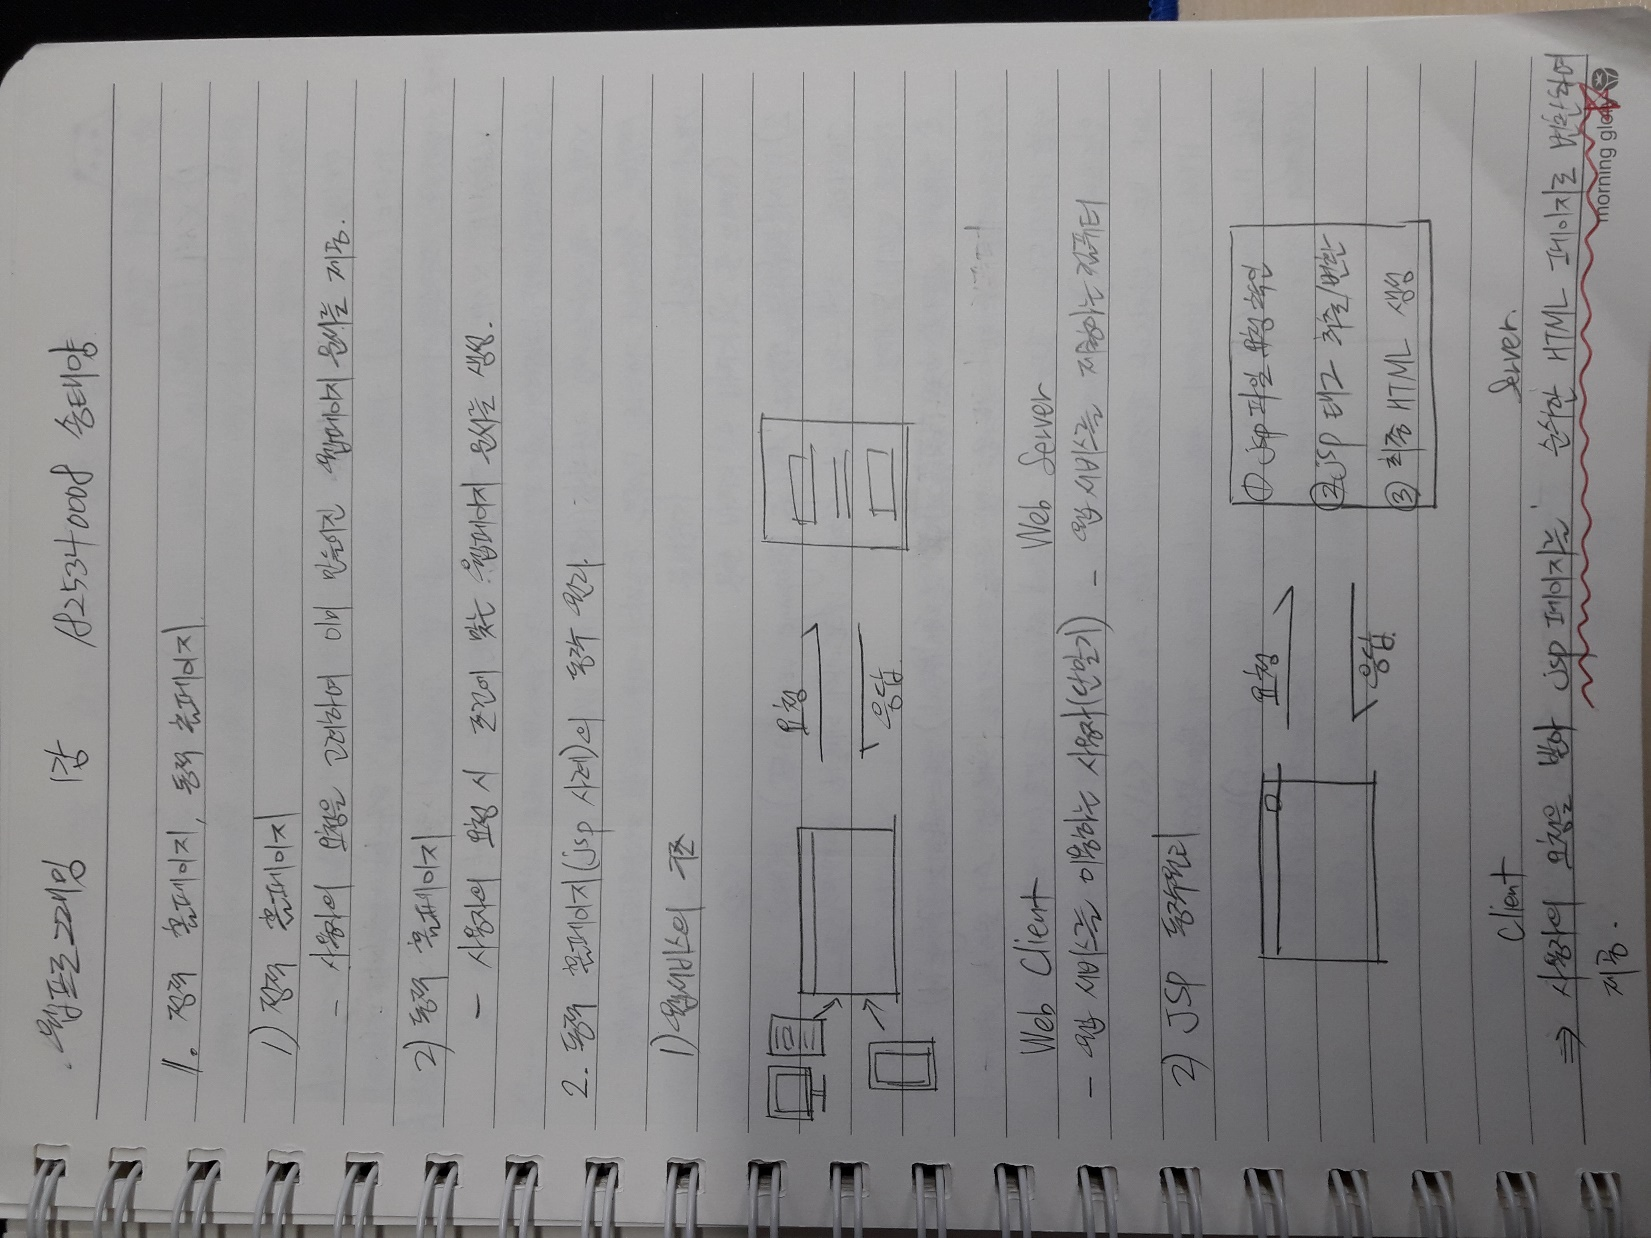 웹프로그래밍 1강 송태양
1. 정적 홈페이지, 동적 홈페이지
1) 정적 홈페이지
- 사용자의 요청을 고려하여 이미 만들어진 웹페이지 원사를 제공.
2) 동적 홈페이지
- 사용자의 요청 시 조건에 맞는 웹페이지 원사를 생성.
2. 동적 홈페이지(jsp 사례)의 동작 원리
1) 웹서비스의 구조
요청
응답
Web Client Web Server
- 웹 서비스를 이용하는 사용자(단말기) - 웹 서비스를 제공하는 컴퓨터
2) JSP 동작원리
요청
응답
① jsp파일 요청 확인
② jsp 태그 추출/변환
③ 최종 HTML 생성
Client Server
⇒ 사용자의 요청을 받아 jsp 페이지는 순수한 HTML 페이지로 변환하여
제공.
morning glory